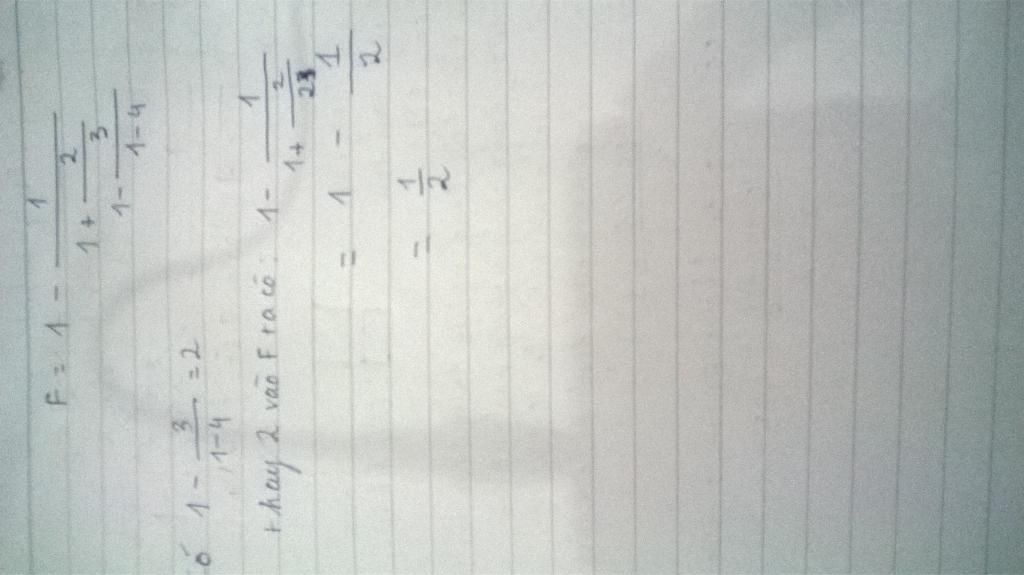 F = 1 - \frac{1}{1 + \frac{2}{1 - \frac{3}{1-4}}}
ó 1 - \frac{3}{1-4} = 2
thay 2 vào F ta có: 1 - \frac{1}{1 + \frac{2}{2}}
= 1 - \frac{1}{2}
= \frac{1}{2}